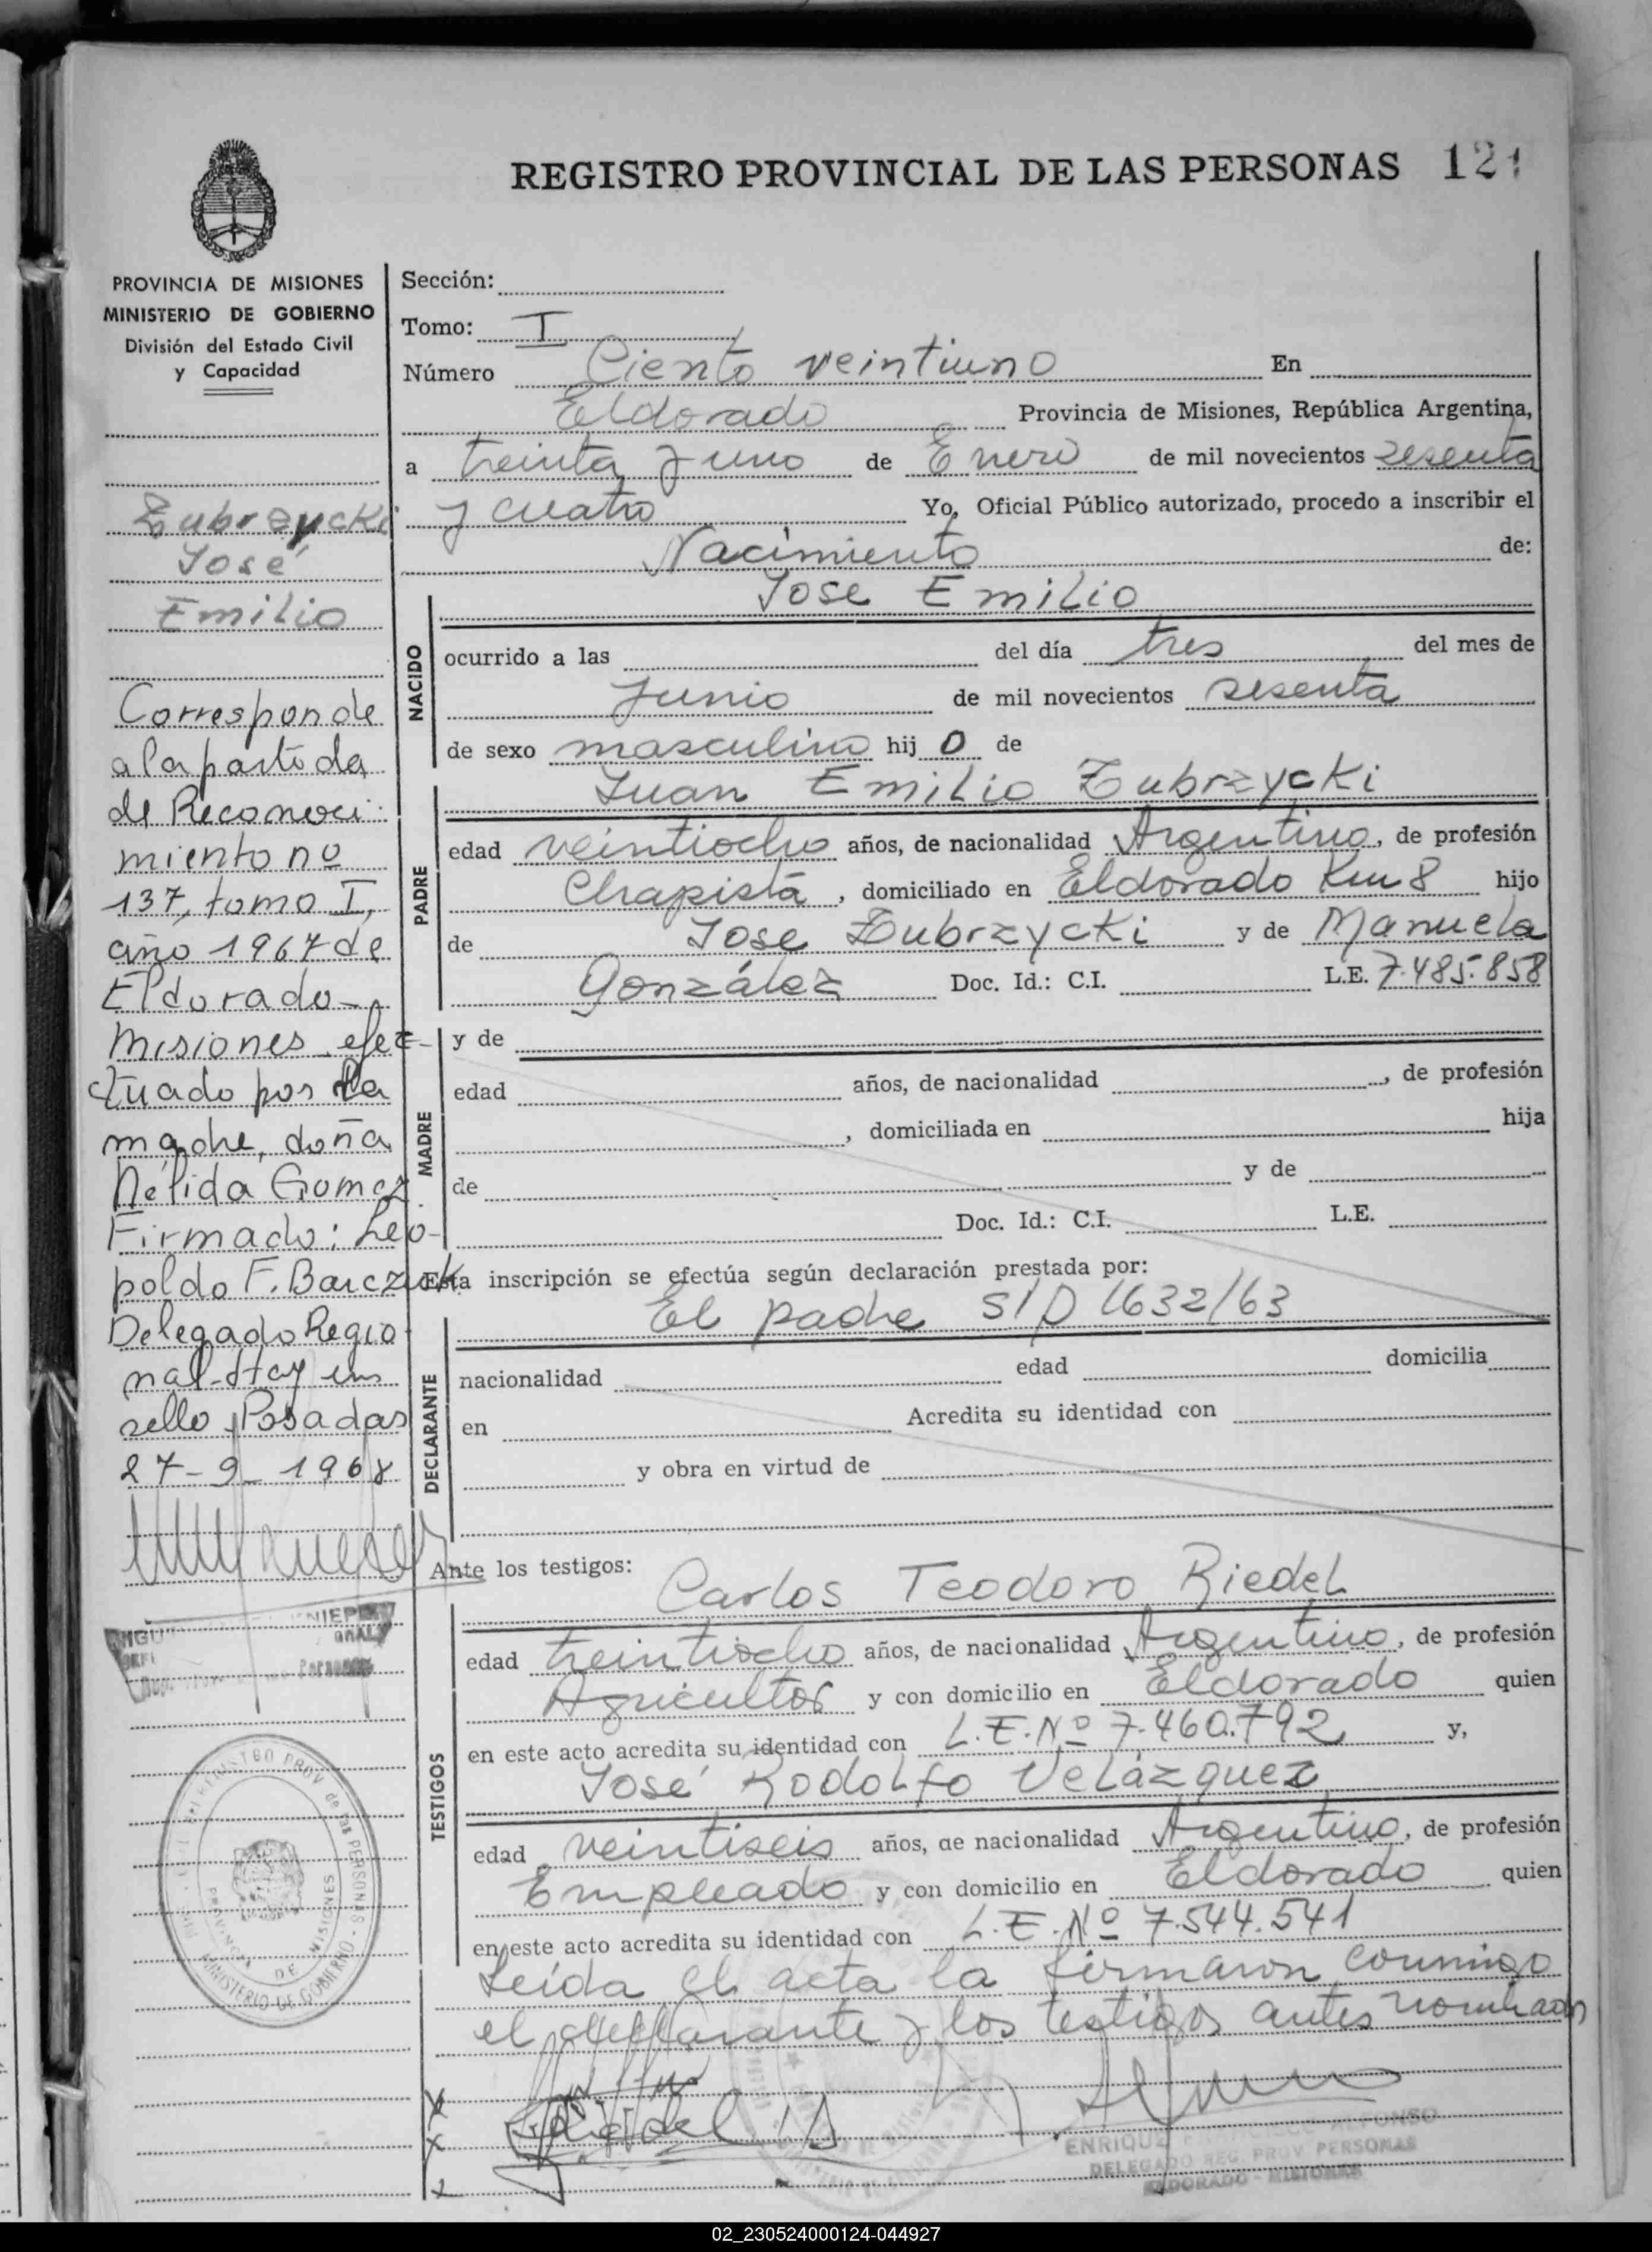 REGISTRO PROVINCIAL DE LAS PERSONAS 121
PROVINCIA DE MISIONES
MINISTERIO DE GOBIERNO
División del Estado Civil
y Capacidad
Zubrzycki
José
Emilio
Corresponde
a la partida
de Reconoci
miento no
137, tomo I,
año 1967 de
Eldorado-
Misiones efec-
tuado por la
madre, doña
Nélida Gomez.
Firmado: Leo-
poldo F. Barczuk
Delegado Regio
nal-Hay un
sello Posadas
27-9-1968
Sección:
Tomo: I
Número Ciento veintiuno En
Eldorado Provincia de Misiones, República Argentina,
a treinta y uno de Enero de mil novecientos sesenta
y cuatro Yo, Oficial Público autorizado, procedo a inscribir el
Nacimiento de:
Jose Emilio
NACIDO
ocurrido a las del día tres del mes de
Junio de mil novecientos sesenta
de sexo masculino hij o de
Juan Emilio Zubrzycki
PADRE
edad veintiocho años, de nacionalidad Argentino, de profesión
Chapista, domiciliado en Eldorado Km 8 hijo
de Jose Zubrzycki y de Manuela
González Doc. Id.: C.I. L.E. 7.485.858
MADRE
y de
edad años, de nacionalidad , de profesión
, domiciliada en hija
de y de
Doc. Id.: C.I. L.E.
Esta inscripción se efectúa según declaración prestada por:
El padre S/D 1632/63
DECLARANTE
nacionalidad edad domicilia
en Acredita su identidad con
y obra en virtud de
Ante los testigos:
Carlos Teodoro Riedel
TESTIGOS
edad treintiocho años, de nacionalidad Argentino, de profesión
Agricultor y con domicilio en Eldorado quien
en este acto acredita su identidad con L.E.Nº 7.460.792 y,
José Rodolfo Velázquez
edad veintiseis años, de nacionalidad Argentino, de profesión
Empleado y con domicilio en Eldorado quien
en este acto acredita su identidad con L.E.Nº 7.544.541
Leída el acta la firmaron conmigo
el declarante y los testigos antes nombrados
ENRIQUE
DELEGADO REG. PROV. PERSONAS
ELDORADO - MISIONES
REGISTRO PROV. de las PERSONAS - MINISTERIO DE GOBIERNO
PROVINCIA DE MISIONES
02_230524000124-044927